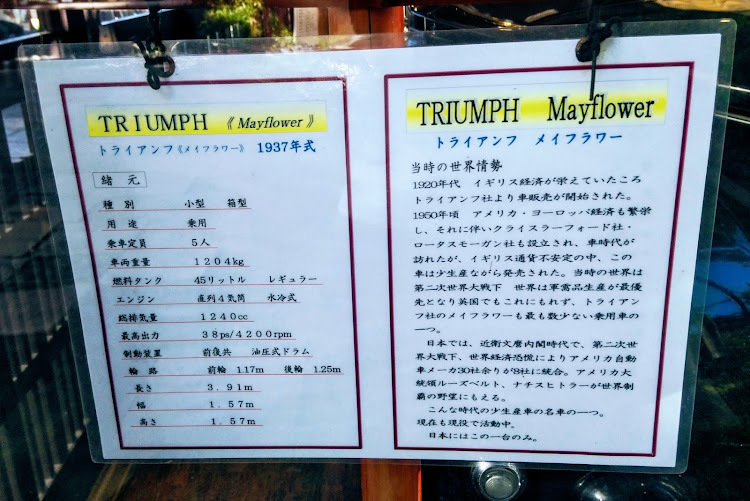 TRIUMPH 《Mayflower》
トライアンフ《メイフラワー》 1937年式
緒元
種別 小型 箱型
用途 乗用
乗車定員 5人
車両重量 1204kg
燃料タンク 45リットル レギュラー
エンジン 直列4気筒 水冷式
総排気量 1240cc
最高出力 38ps/4200rpm
制動装置 前後共 油圧式ドラム
輪路 前輪 1.17m 後輪 1.25m
長さ 3.91m
幅 1.57m
高さ 1.57m
TRIUMPH Mayflower
トライアンフ メイフラワー
当時の世界情勢
1920年代 イギリス経済が栄えていたころ
トライアンフ社より車販売が開始された。
1950年頃 アメリカ・ヨーロッパ経済も繁栄
し、それに伴いクライスラーフォード社・
ロータスモーガン社も設立され、車時代が
訪れたが、イギリス通貨不安定の中、この
車は少生産ながら発売された。当時の世界は
第二次世界大戦下 世界は軍需品生産が最優
先となり英国でもこれにもれず、トライアン
フ社のメイフラワーも最も数少ない乗用車の
一つ。
日本では、近衛文麿内閣時代で、第二次世
界大戦下、世界経済恐慌によりアメリカ自動
車メーカ30社余りが8社に統合。アメリカ大
統領ルーズベルト、ナチスヒトラーが世界制
覇の野望にもえる。
こんな時代の少生産車の名車の一つ。
現在も現役で活動中。
日本にはこの一台のみ。